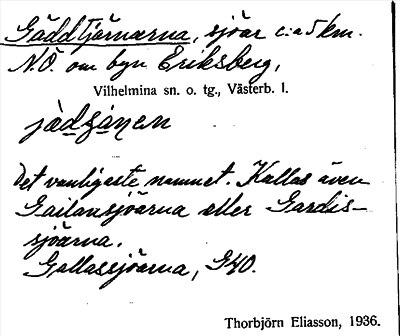 Gäddtjärnarna, sjöar c:a 5 km.
N.Ö. om byn Eriksberg,
Vilhelmina sn. o. tg., Västerb. l.
Det vanligaste namnet. Kallas även
Gailansjöarna eller Gardis-
sjöarna.
Gallassjöarna, G40.
Thorbjörn Eliasson, 1936.